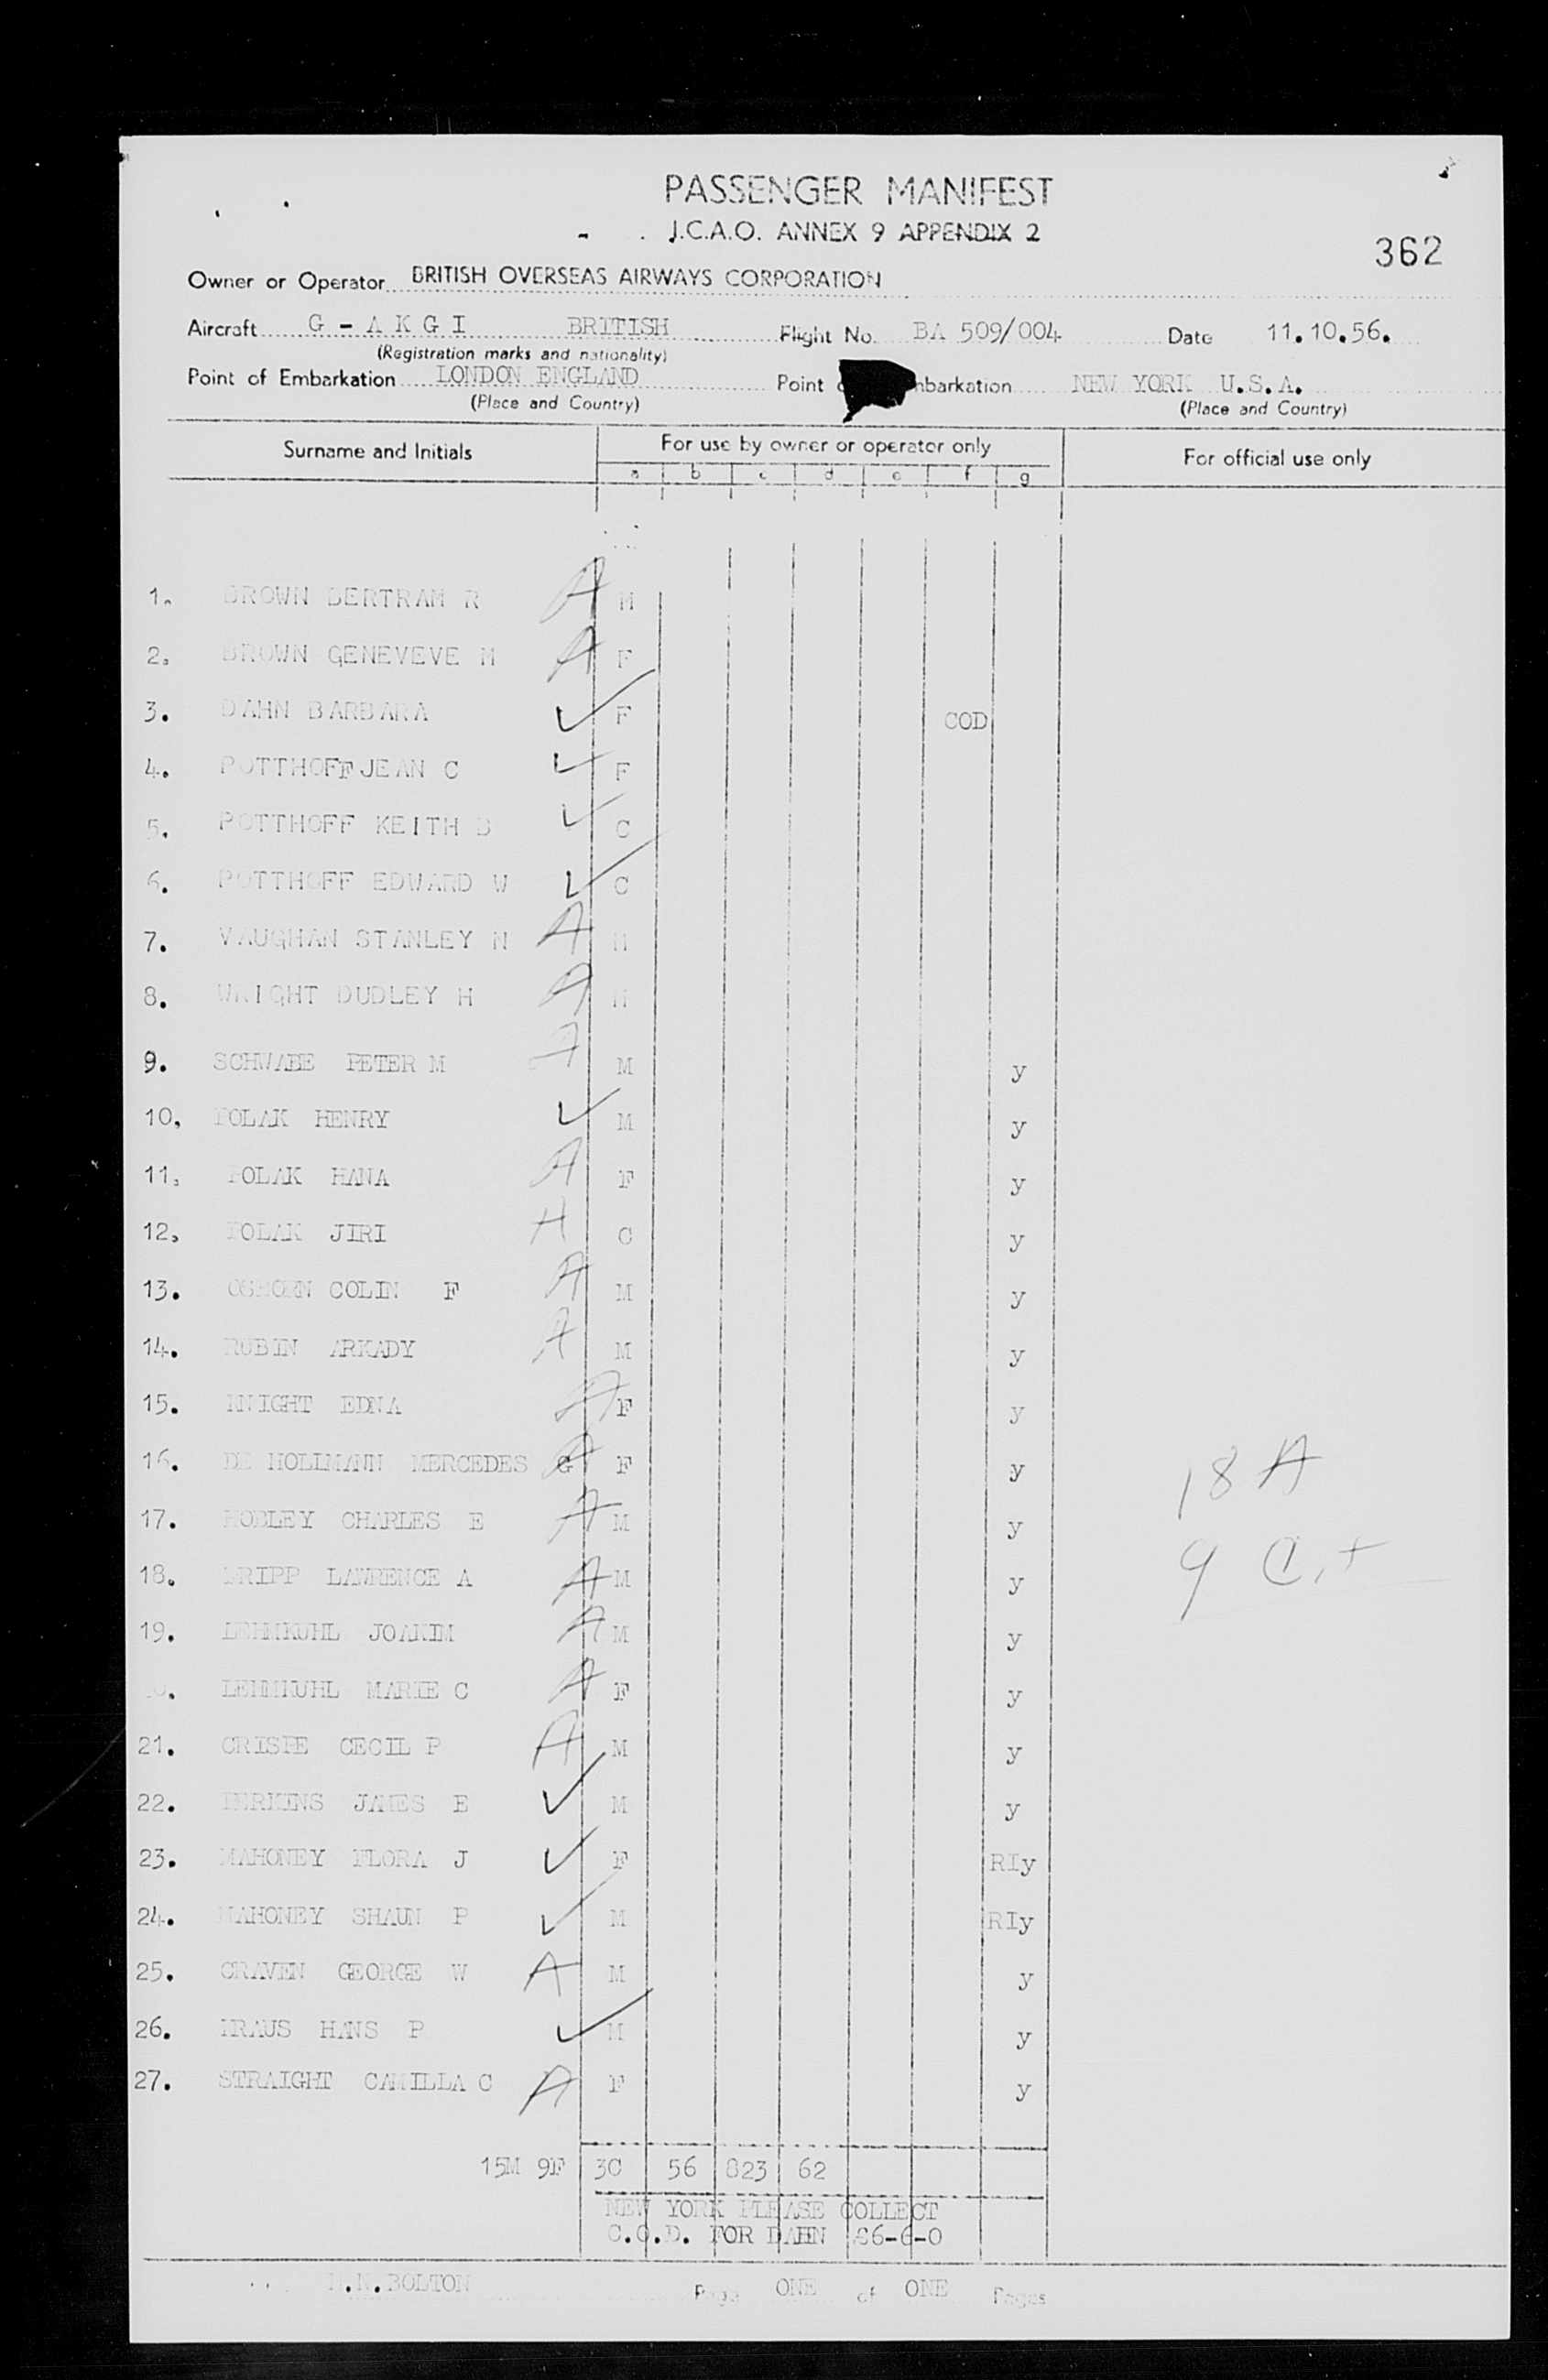 PASSENGER MANIFEST
I.C.A.O. ANNEX 9 APPENDIX 2
362
Owner or Operator BRITISH OVERSEAS AIRWAYS CORPORATION
Aircraft G - A K G I BRITISH Flight No. BA 509/004 Date 11.10.56.
(Registration marks and nationality)
Point of Embarkation LONDON ENGLAND Point mbarkation NEW YORK U.S.A.
(Place and Country) (Place and Country)
Surname and Initials For use by owner or operator only For official use only
a b c d e f g
1. BROWN BERTRAM R A M
2. BROWN GENEVEVE M A F
3. DAHN BARBARA ✓ F COD
4. POTTHOFF JEAN C ✓ F
5. POTTHOFF KEITH D ✓ C
6. POTTHOFF EDWARD W ✓ C
7. VAUGHAN STANLEY N A M
8. WRIGHT DUDLEY H A M
9. SCHWABE PETER M A M y
10. POLAK HENRY ✓ M y
11. POLAK HANA A F y
12. POLAK JIRI A C y
13. COLIN F A M y
14. RUBIN ARKADY A M y
15. KNIGHT EDNA A F y
16. DE HOLLMANN MERCEDES G A F y
17. MOBLEY CHARLES E A M y
18. LAWRENCE A A M y
19. LEHMKUHL JOAKIM A M y
20. LEHMKUHL MARIE C A F y
21. CRISPE CECIL P A M y
22. PERKINS JAMES E ✓ M y
23. MAHONEY FLORA J ✓ F RIy
24. MAHONEY SHAUN P ✓ M RIy
25. CRAVEN GEORGE W A M y
26. KRAUS HANS P ✓ M y
27. STRAIGHT CAMILLA C A F y
18 A
9 C.t
15M 9F 3C 56 823 62
NEW YORK PLEASE COLLECT
C.O.D. FOR DAHN £6-6-0
N.BOLTON Page ONE of ONE Pages